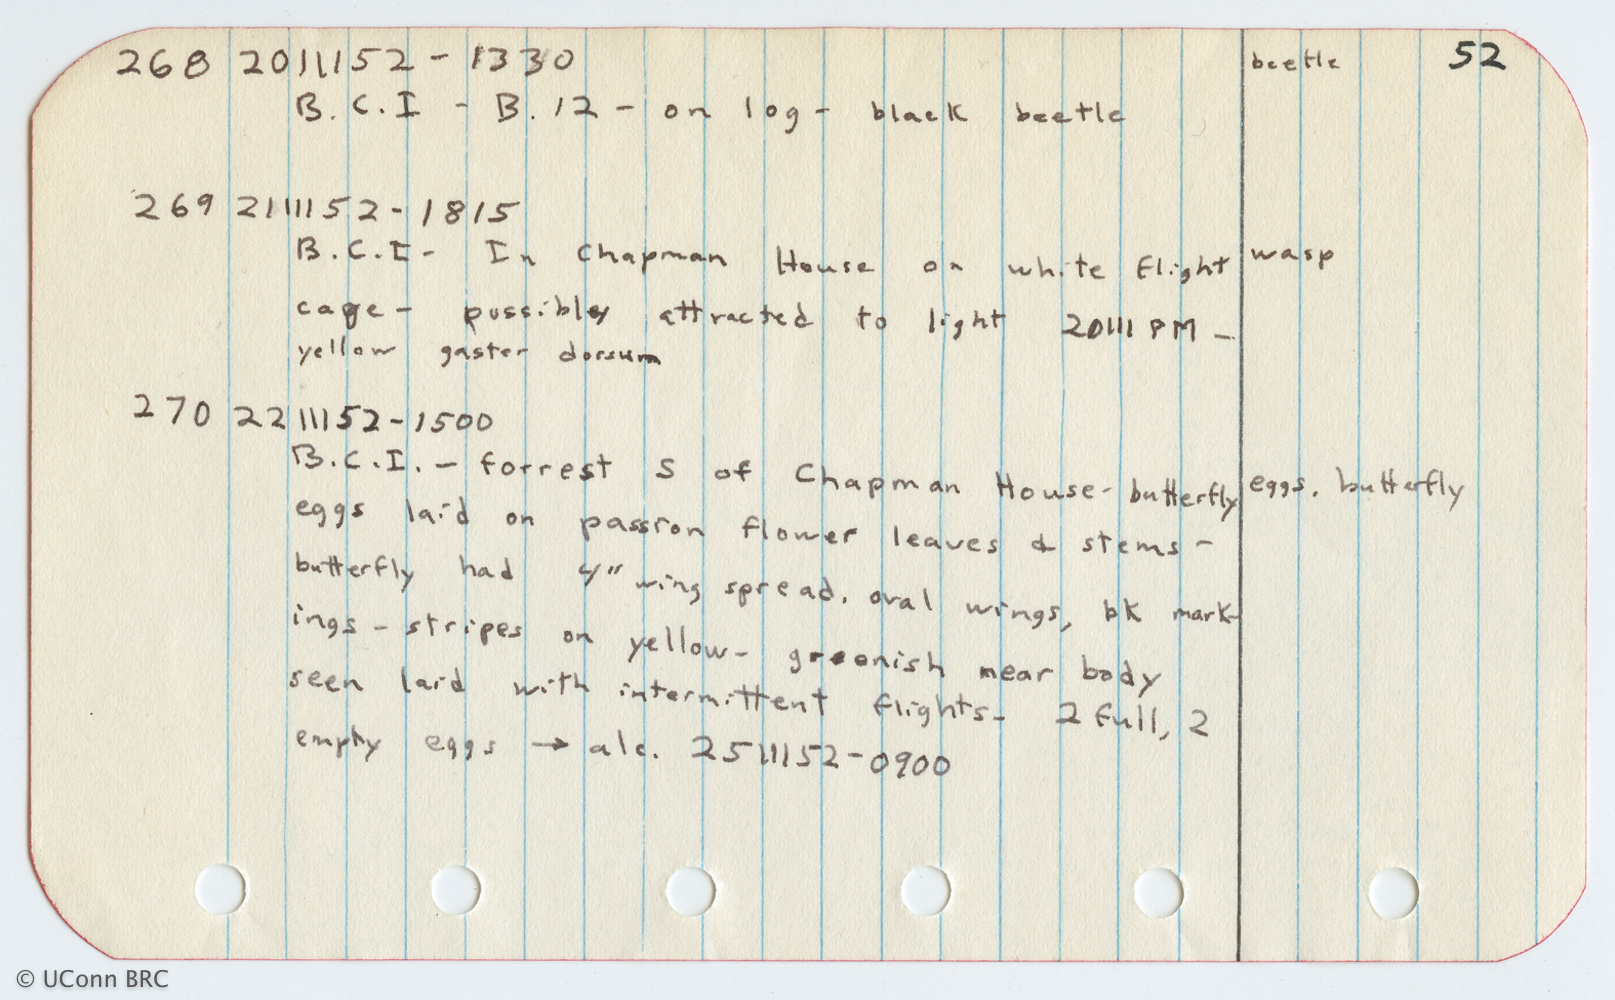 268 20III52 - 1330 beetle 52
B.C.I - B.12 - on log - black beetle
269 21III52 - 1815
B.C.I - In Chapman House on white flight wasp
cage - possibly attracted to light 20III PM -
yellow gaster dorsum
270 22III52 - 1500
B.C.I. - forrest S of Chapman House - butterfly eggs, butterfly
eggs laid on passion flower leaves & stems -
butterfly had 4" wing spread, oval wings, bk mark-
ings - stripes on yellow - greenish near body
seen laid with intermittent flights - 2 full, 2
empty eggs → alc. 25III52 - 0900
© UConn BRC